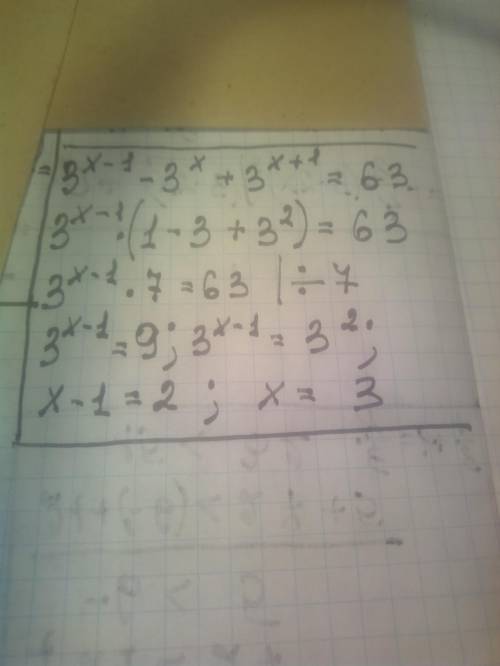 = 3^{x-1} - 3^x + 3^{x+1} = 63
3^{x-1} · (1 - 3 + 3^2) = 63
3^{x-1} · 7 = 63 | ÷ 7
3^{x-1} = 9; 3^{x-1} = 3^2;
x - 1 = 2; x = 3